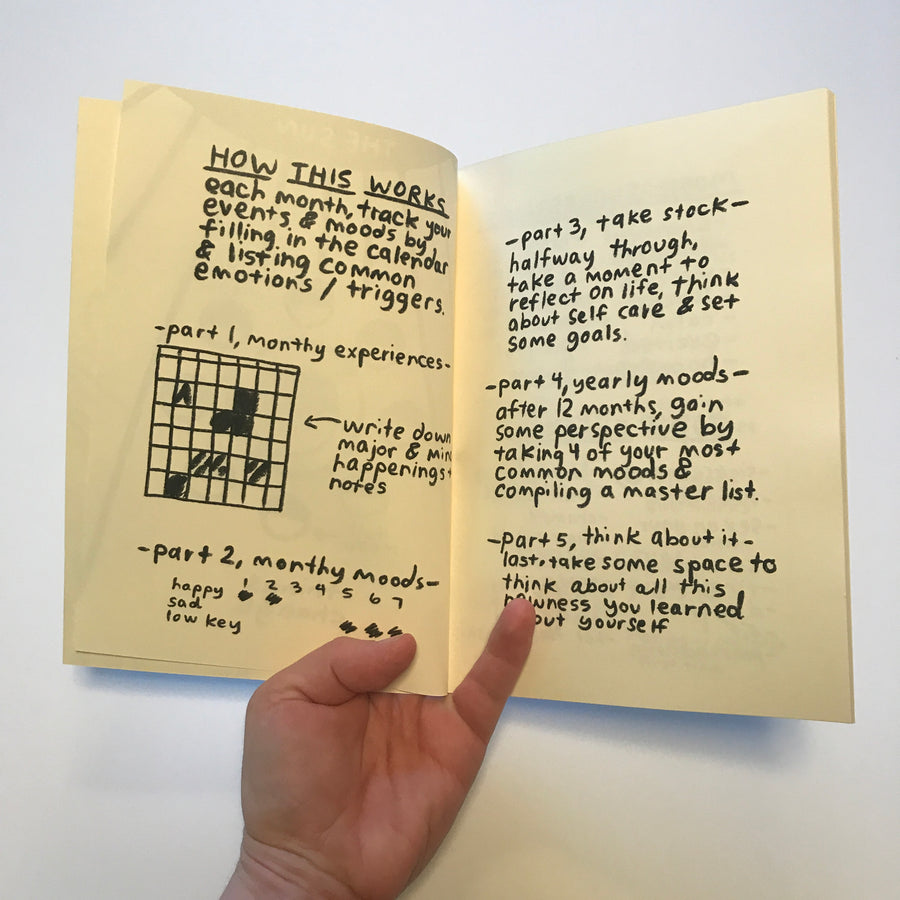 HOW THIS WORKS
each month, track your
events & moods by
filling in the calendar
& listing common
emotions / triggers.
-part 1, monthy experiences-
write down
major &
happenings +
notes
-part 2, monthy moods-
1 2 3 4 5 6 7
happy
sad
low key
-part 3, take stock-
halfway through,
take a moment to
reflect on life, think
about self care & set
some goals.
-part 4, yearly moods-
after 12 months, gain
some perspective by
taking 4 of your most
common moods &
compiling a master list.
-part 5, think about it-
last, take some space to
think about all this
newness you learned
about yourself